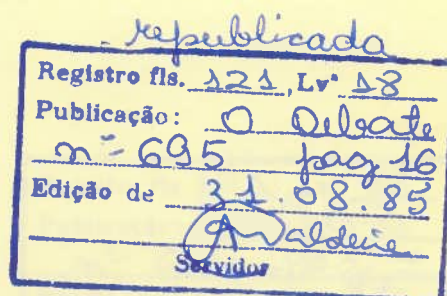 republicada
Registro fls. 121, Lvº 18
Publicação: O Debate
nº 695 pag 16
Edição de 31.08.85
Servidor